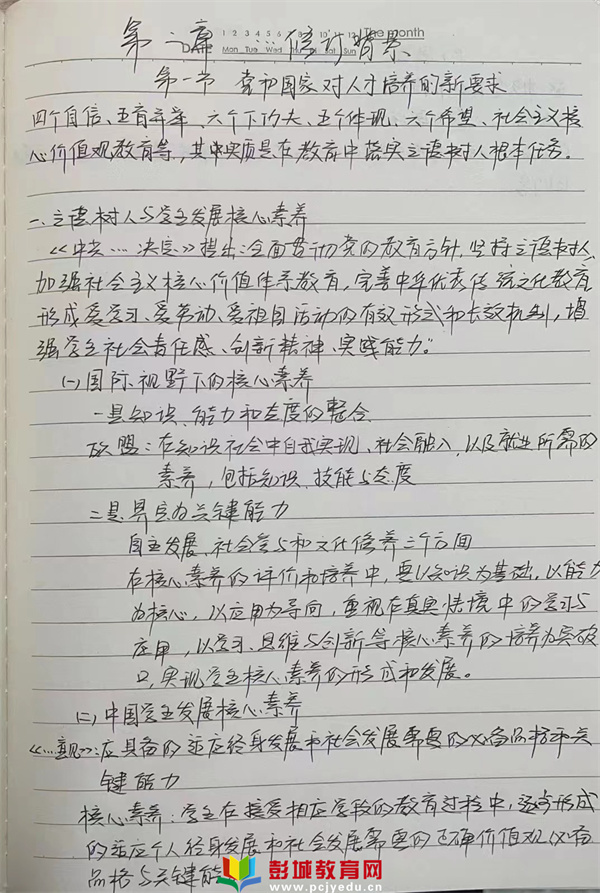 第一篇 ……修订背景
1 2 3 4 5 6 7 8 9 10 11 12 The month
Mon Tue Wed Thu Fri Sat Sun
第一节 党和国家对人才培养的新要求
四个自信、五育并举、六个下功夫、五个体现、六个希望、社会主义核
心价值观教育等,其中实质是在教育中落实立德树人根本任务。
一、立德树人与学生发展核心素养
《中共…决定》提出:全面贯彻党的教育方针,坚持立德树人,
加强社会主义核心价值体系教育,完善中华优秀传统文化教育,
形成爱学习、爱劳动、爱祖国活动的有效形式和长效机制,增
强学生社会责任感、创新精神、实践能力。"
(一)国际视野下的核心素养
一是知识、能力和态度的整合
欧盟:在知识社会中自我实现、社会融入,以及就业所需的
素养,包括知识、技能与态度
二是界定为关键能力
自主发展、社会参与和文化修养三个方面
在核心素养的评价和培养中,要以知识为基础,以能力
为核心,以应用为导向,重视在真实情境中的学习与
应用,以学习、思维与创新等核心素养的培养为突破
口,实现学生核心素养的形成和发展。
(二)中国学生发展核心素养
《…意见》:应具备的适应终身发展和社会发展需要的必备品格和关
键能力
核心素养:学生在接受相应学段的教育过程中,逐步形成
的适应个人终身发展和社会发展需要的正确价值观、必备
品格与关键能
彭城教育网
www.pcjyedu.cn